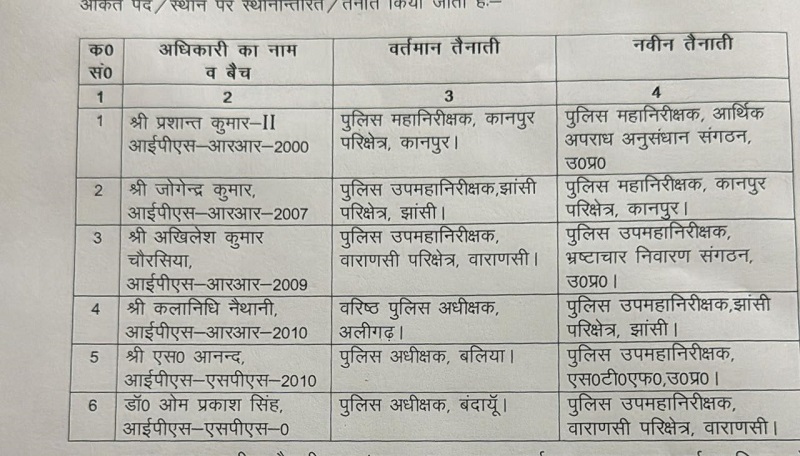 अंकित पद/स्थान पर स्थानान्तरित/तैनात किया जाता है:–
क0 सं0
अधिकारी का नाम व बैच
वर्तमान तैनाती
नवीन तैनाती
1
2
3
4
1
श्री प्रशान्त कुमार–II
आईपीएस–आरआर–2000
पुलिस महानिरीक्षक, कानपुर
परिक्षेत्र, कानपुर।
पुलिस महानिरीक्षक, आर्थिक
अपराध अनुसंधान संगठन,
उ0प्र0
2
श्री जोगेन्द्र कुमार,
आईपीएस–आरआर–2007
पुलिस उपमहानिरीक्षक,झांसी
परिक्षेत्र, झांसी।
पुलिस महानिरीक्षक, कानपुर
परिक्षेत्र, कानपुर।
3
श्री अखिलेश कुमार
चौरसिया,
आईपीएस–आरआर–2009
पुलिस उपमहानिरीक्षक,
वाराणसी परिक्षेत्र, वाराणसी।
पुलिस उपमहानिरीक्षक,
भ्रष्टाचार निवारण संगठन,
उ0प्र0।
4
श्री कलानिधि नैथानी,
आईपीएस–आरआर–2010
वरिष्ठ पुलिस अधीक्षक,
अलीगढ़।
पुलिस उपमहानिरीक्षक,झांसी
परिक्षेत्र, झांसी।
5
श्री एस0 आनन्द,
आईपीएस–एसपीएस–2010
पुलिस अधीक्षक, बलिया।
पुलिस उपमहानिरीक्षक,
एस0टी0एफ0,उ0प्र0।
6
डॉ0 ओम प्रकाश सिंह,
आईपीएस–एसपीएस–0
पुलिस अधीक्षक, बंदायूॅ।
पुलिस उपमहानिरीक्षक,
वाराणसी परिक्षेत्र, वाराणसी।